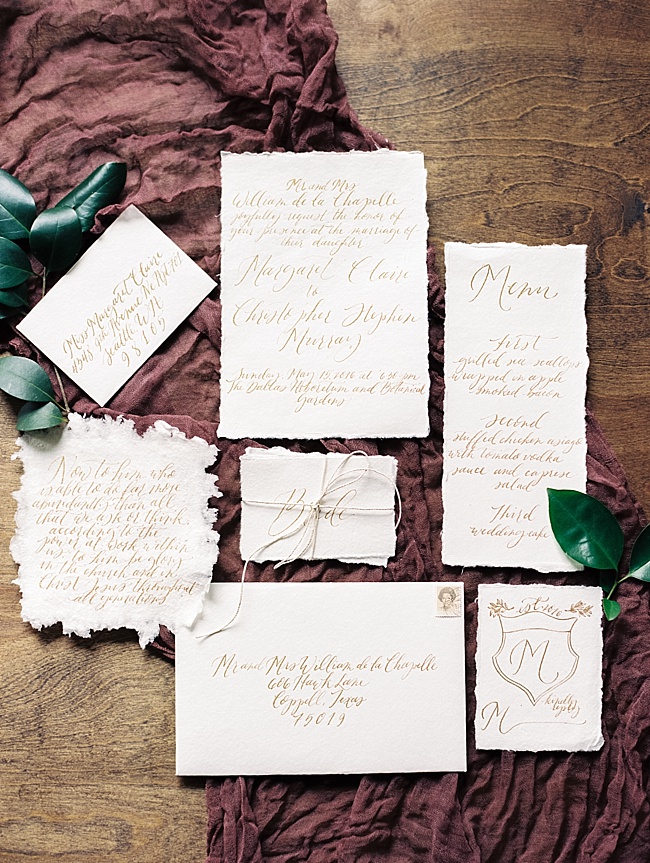 Mr and Mrs
William de la Chapelle
joyfully request the honor of
your presence at the marriage of
their daughter
Margaret Claire
to
Christopher Stephen
Murray
Sunday, May 15, 2016 at 6:30 pm
The Dallas Arboretum and Botanical
Gardens
Menu
First
grilled sea scallops
wrapped in apple
smoked bacon
Second
stuffed chicken asiago
with tomato vodka
sauce and caprese
salad
Third
wedding cake
Miss Margaret Claire
Avenue
Seattle WA
98109
Now to him who
is able to do far more
abundantly than all
that we ask or think,
according to the
power at work within
us, to him be glory
in the church and in
Christ Jesus throughout
all generations
Bride
Mr and Mrs William de la Chapelle
606 Hawk Lane
Coppell, Texas
75019
est. 2016
M
M
kindly
reply by